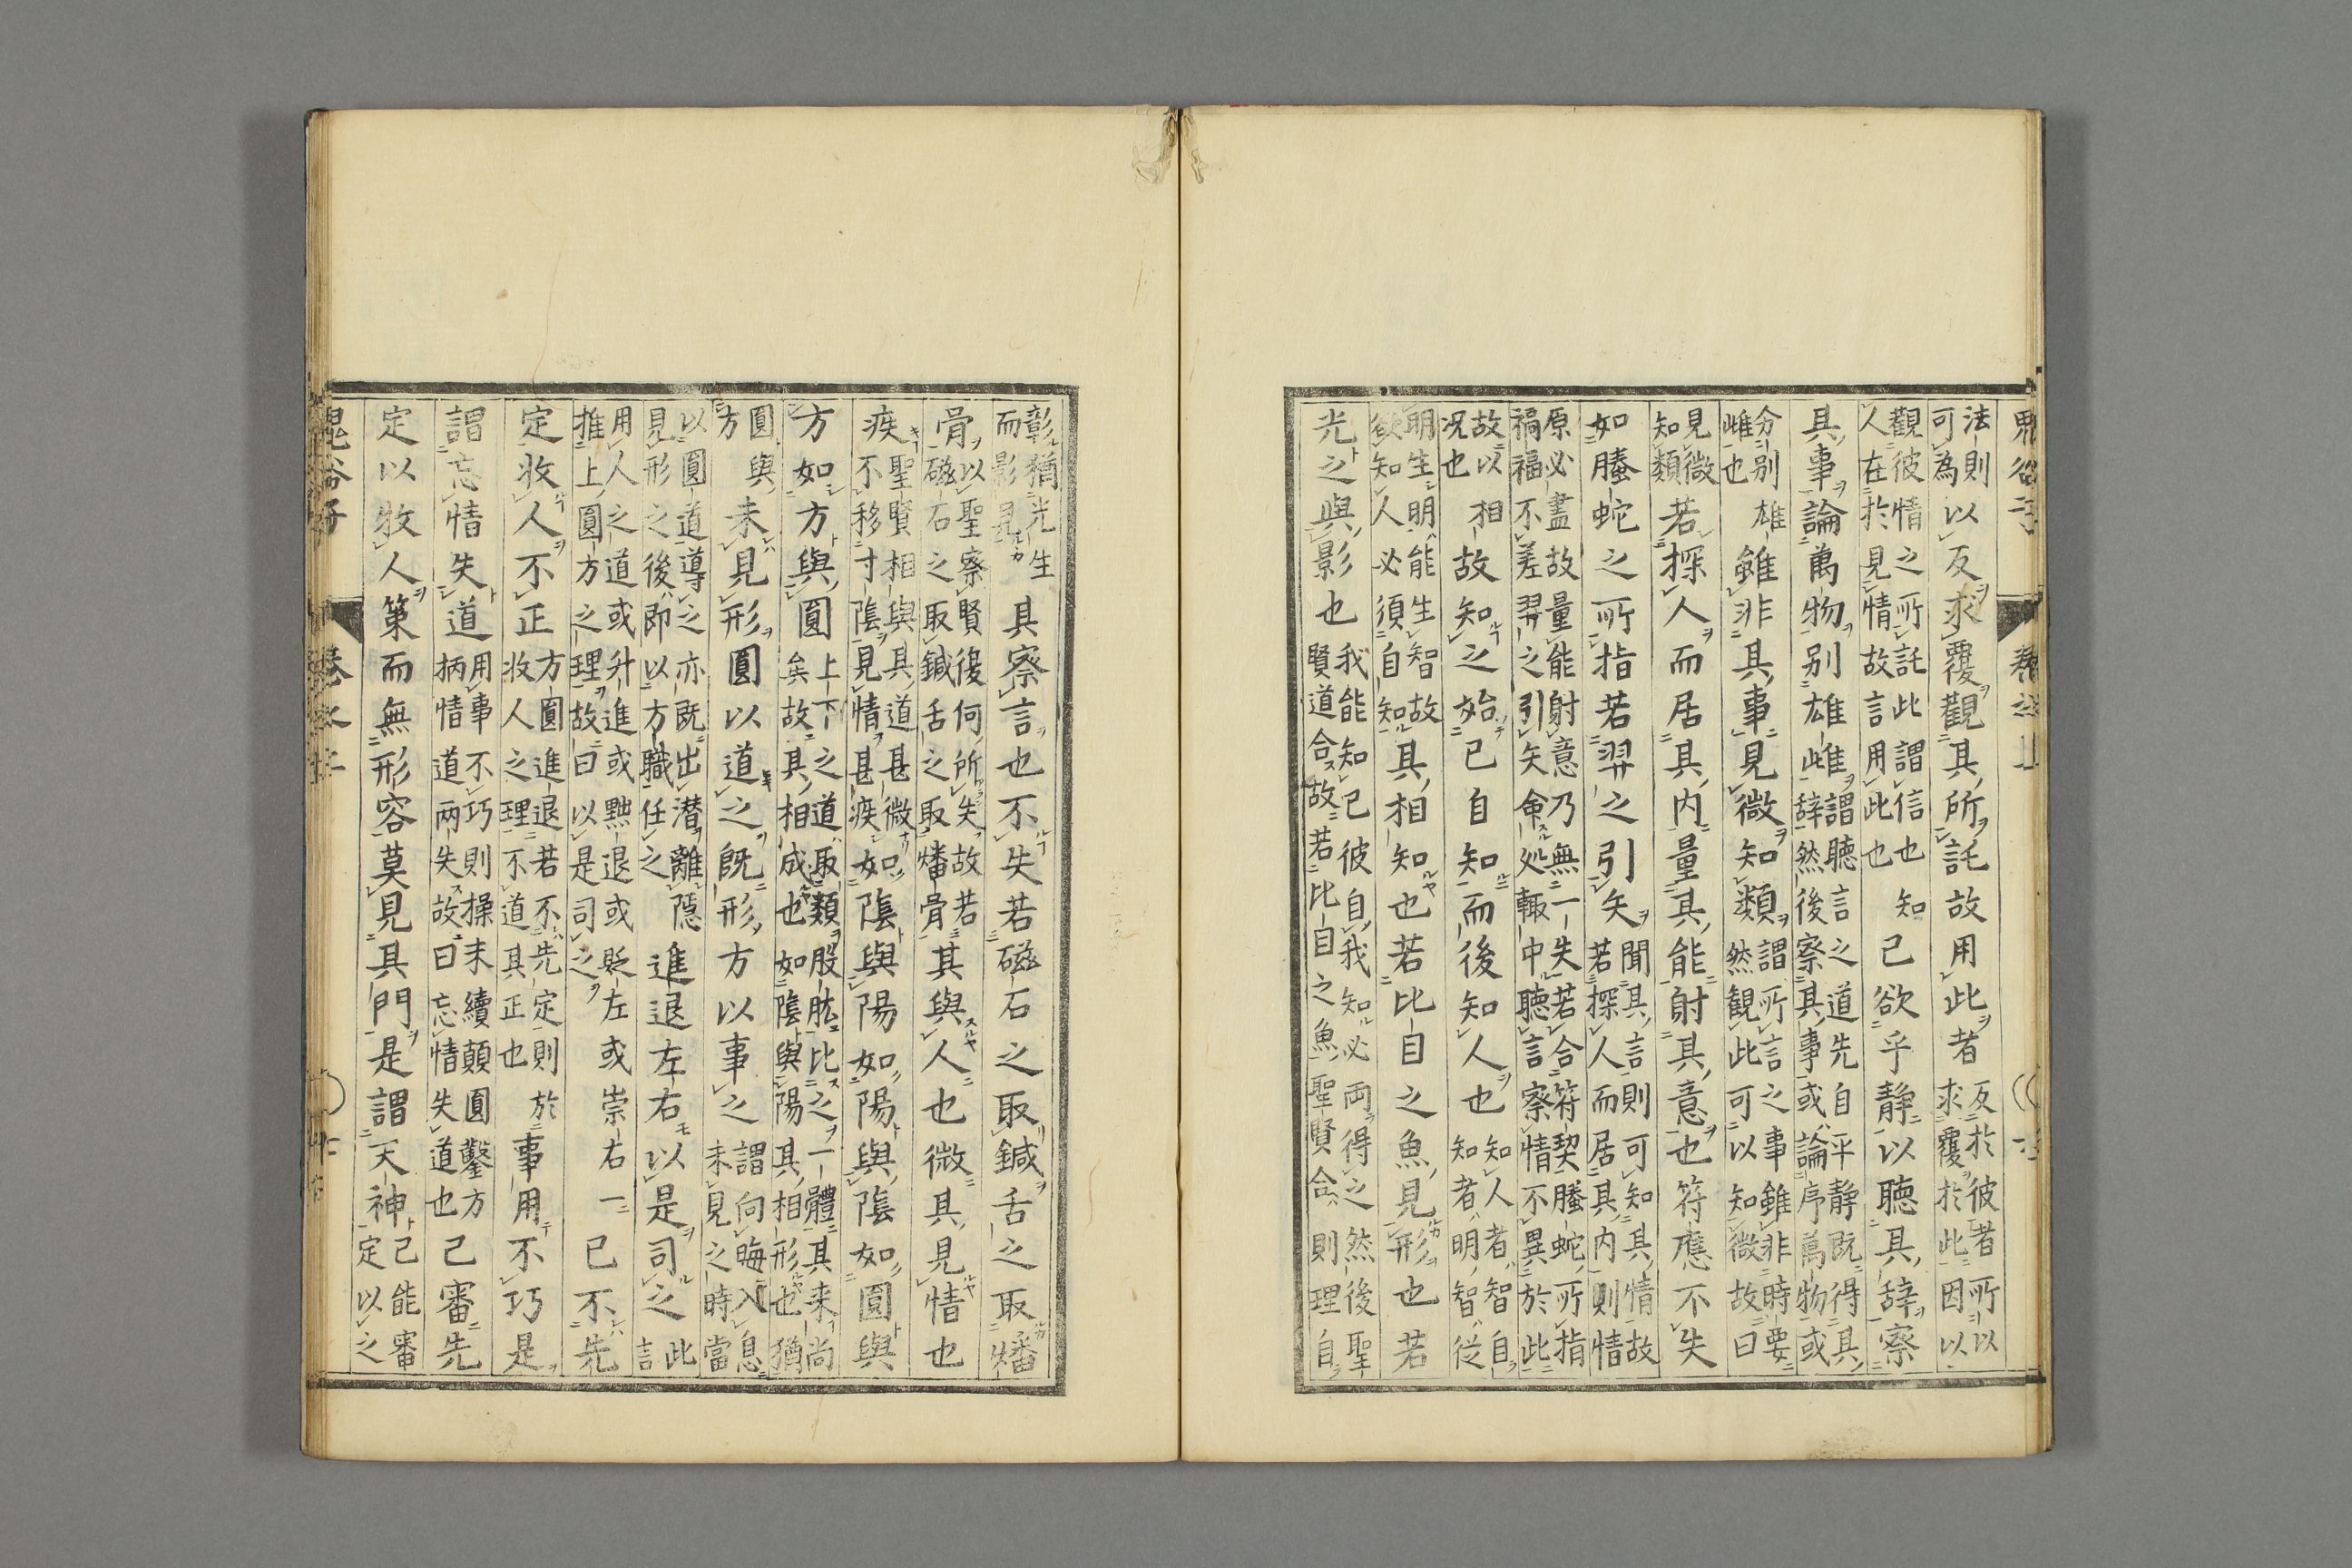 鬼谷子 卷之上
法則可為以反求覆觀其所託故用此者反於彼者所以求覆於此因以
觀彼情之所託此謂信也知人在於見情故言用此也己欲乎静以聽其辞察
其事論萬物别雄雌謂聽言之道先自平静既得其辞然後察其事或論序萬物或
分别雄雌也雖非其事見微知類謂所言之事雖非時要然観此可以知微故曰
見微知類若探人而居其内量其能射其意也符應不失
如螣蛇之所指若羿之引矢聞其言則可知其情故若探人而居其内則情
原必盡故量能射意乃無一失若合符契螣蛇所指禍福不差羿之引矢命処輙中聽言察情不異於此
故以相况也故知之始己自知而後知人也知人者智自知者明智從
明生明能生智故欲知人必須自知其相知也若比目之魚見形也若
光之與影也我能知己彼自我知必両得之然後聖賢道合故若比目之魚聖賢合則理自
彰猶光生而影見其察言也不失若磁石之取鍼舌之取燔
骨以聖察賢復何所失故若磁石之取鍼舌之取燔骨其與人也微其見情也
疾聖賢相與其道甚微不移寸陰見情甚疾如陰與陽如陽與陰如圓與
方如方與圓上下之道取類股肱比之一體其来尚矣故其相成也如陰與陽其相形也猶
圓與方未見形圓以道之既形方以事之謂向晦入息未見之時當
以圓道導之亦既出潜離隠見形之後即以方職任之進退左右以是司之此言
用人之道或升進或黜退或貶左或崇右一推上圓方之理故曰以是司之己不先
定牧人不正方圓進退若不先定則於牧人之理不道其正也事用不巧是
謂忘情失道用事不巧則操末續顛圓鑿方柄情道両失故曰忘情失道也己審先
定以牧人策而無形容莫見其門是謂天神己能審定以之
鬼谷子 卷之上